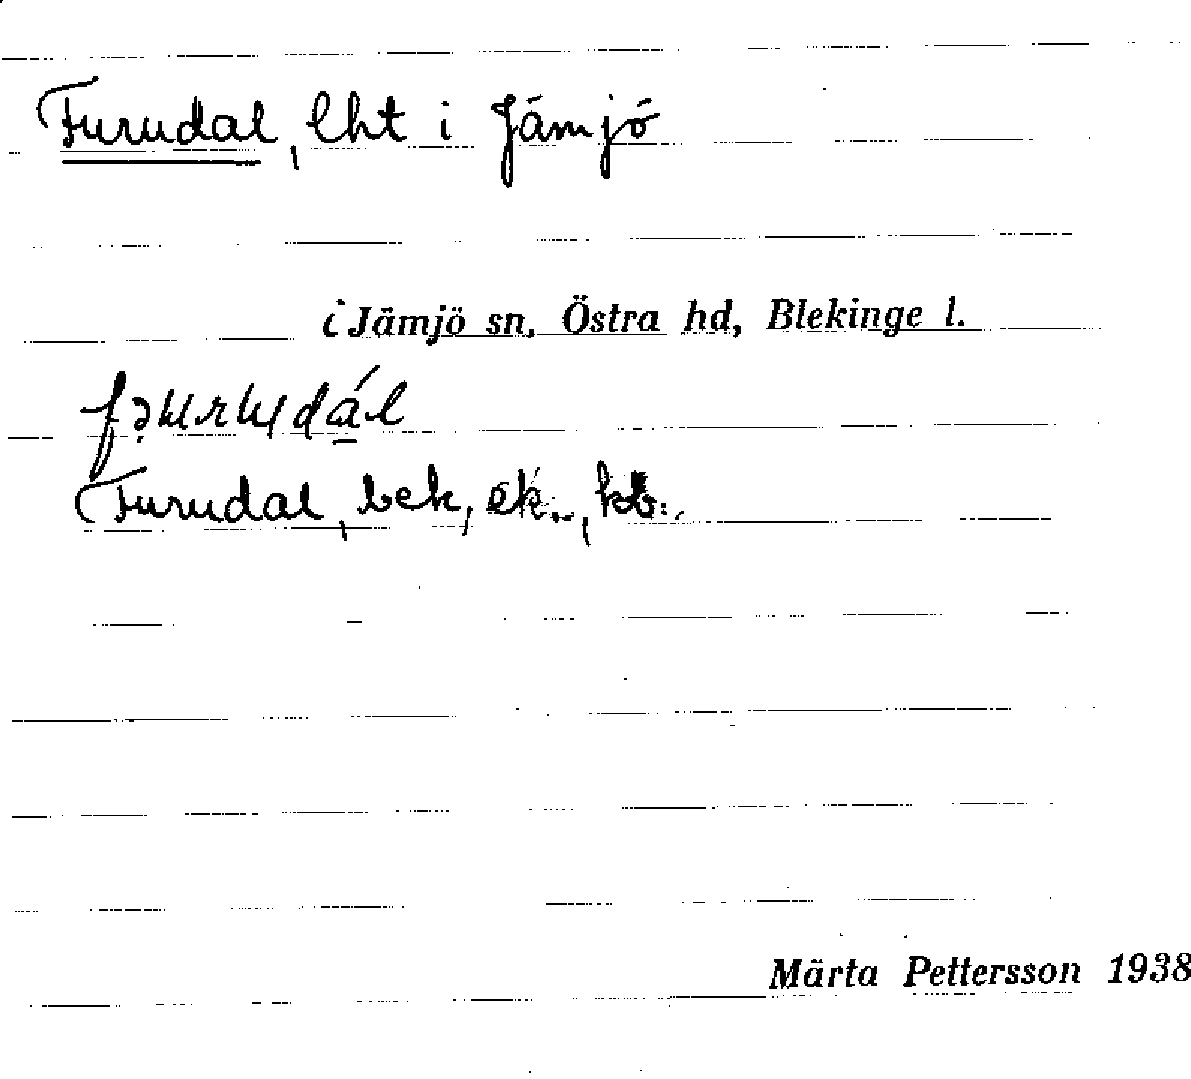 Furudal, lht i Jämjö
i Jämjö sn, Östra hd, Blekinge l.
Furudal, bek, ek., kb.,
Märta Pettersson 1938